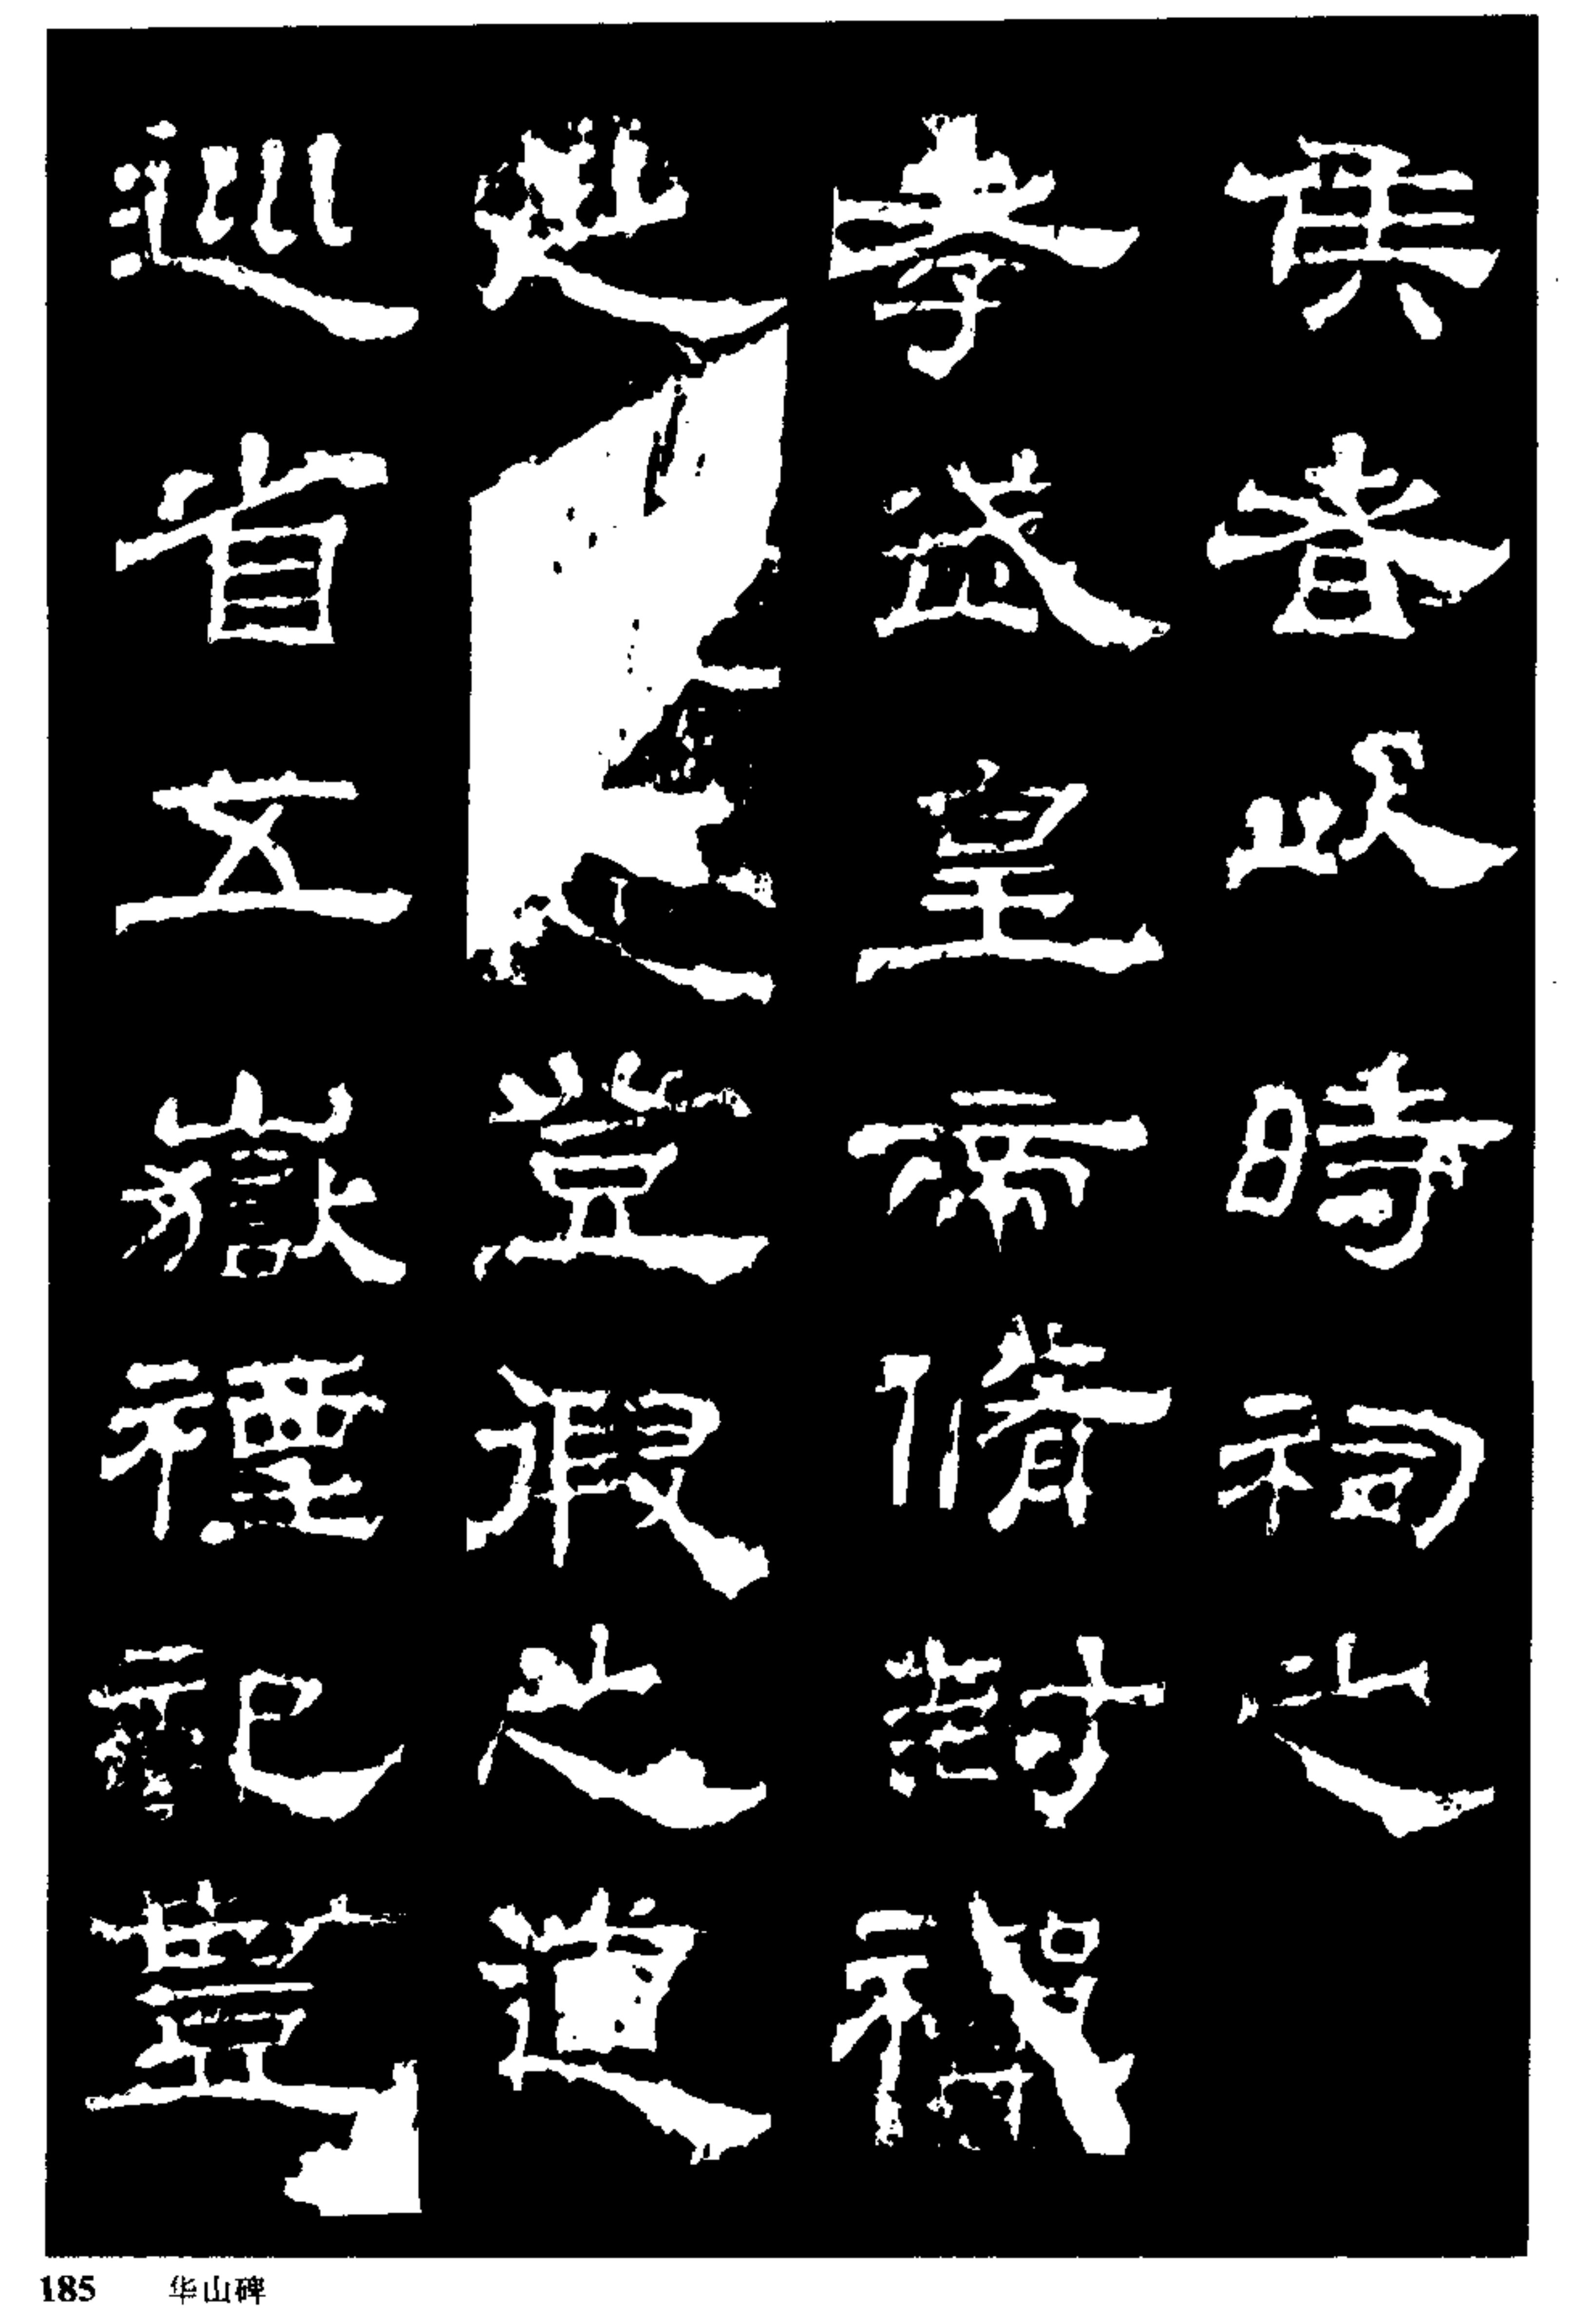 侯者以時祠之
孝武皇帝脩封禪
之思登徦之道
巡省五嶽禋祀豐
185 华山碑